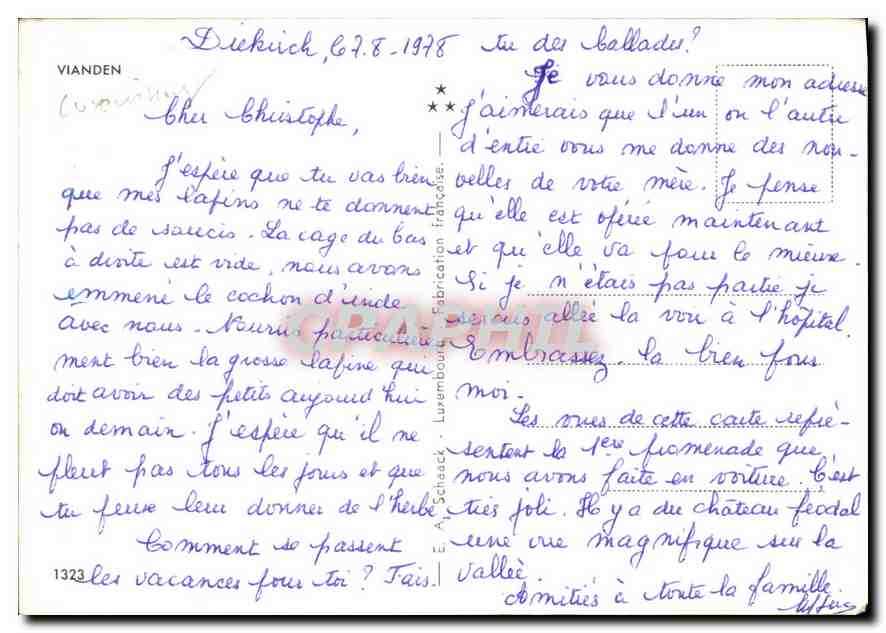 Diekirch, le 7.8-1978
VIANDEN
Cher Christophe,
J'espère que tu vas bien
que mes lapins ne te donnent
pas de soucis. La cage du bas
à droite est vide, nous avons
emmené le cochon d'inde
avec nous. Nourris particulière
ment bien la grosse lapine qui
doit avoir des petits aujourd'hui
ou demain. J'espère qu'il ne
pleut pas tous les jours et que
tu peux leur donner de l'herbe
Comment se passent
1323
les vacances pour toi ? Fais.
E. A. Schaack - Luxembourg - Fabrication française.
tu des ballades ?
Je vous donne mon adresse
J'aimerais que l'un ou l'autre
d'entre vous me donne des nou-
velles de votre mère. Je pense
qu'elle est opérée maintenant
et qu'elle va pour le mieux.
Si je n'étais pas partie je
serais allée la voir à l'hôpital.
Embrassez-la bien pour
moi.
Les vues de cette carte repré-
sentent la 1ère promenade que
nous avons faite en voiture. C'est
très joli. Il y a du château féodal
une vue magnifique sur la
vallée.
Amitiés à toute la famille.
GRAPHIL